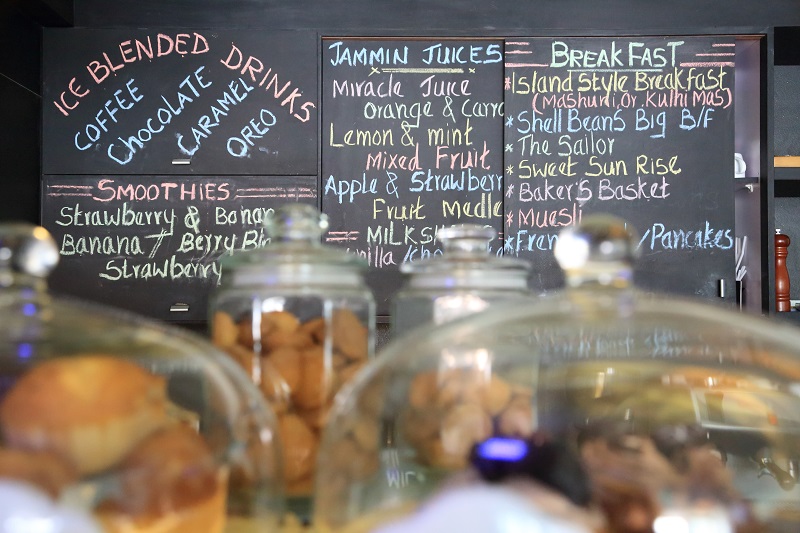 ICE BLENDED DRINKS
COFFEE
Chocolate
CARAMEL
OREO
SMOOTHIES
Strawberry &
Banana / Berry
Strawberry
JAMMIN JUICES
Miracle Juice
orange &
Lemon & mint
Mixed Fruit
Apple &
Fruit
BREAKFAST
*Island Style Breakfast
(Mashuni, Or, Kulhi Mas)
*Shell Beans Big B/F
*The Sailor
*Sweet Sun Rise
*BAKER'S BASKET
*Muesli
/Pancakes